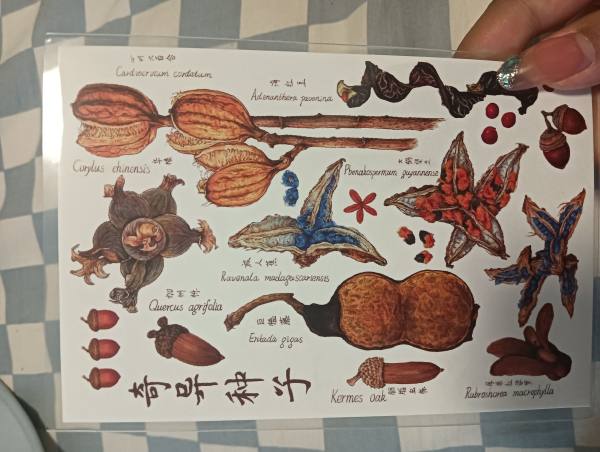 Cardiocrinum cordatum
海红豆
Adenanthera pavonina
华榛
Corylus chinensis
Phenakospermum guyannense
旅人蕉
Ravenala madagascariensis
Quercus agrifolia
巨榼藤
Entada gigas
奇异种子
Kermes oak
Rubroshorea macrophylla